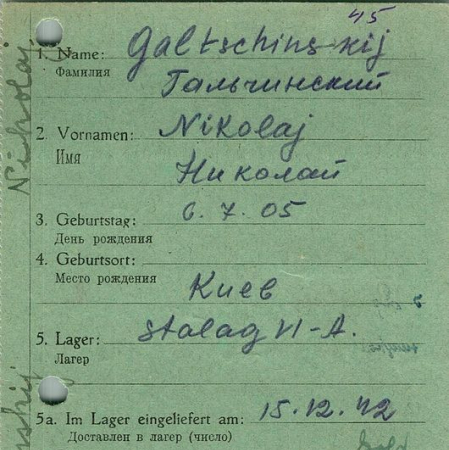 45
1. Name: Galtschinskij
Фамилия Гальчинский
2. Vornamen: Nikolaj
Имя Николай
3. Geburtstag: 6. 7. 05
День рождения
4. Geburtsort:
Место рождения Киев
5. Lager: Stalag VI-A.
Лагер
5a. Im Lager eingeliefert am: 15.12.42
Доставлен в лагер (число)
Nikolaj